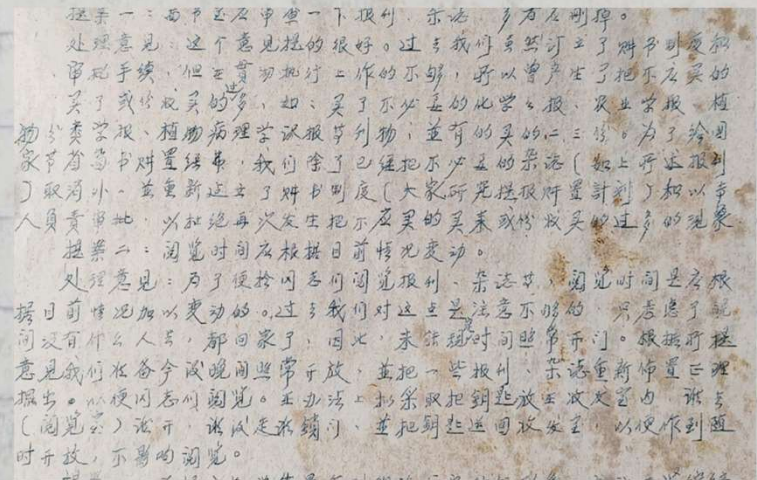 提案一：图书室应审查一下报刊、杂志，多方应删掉。
处理意见：这个意见提的很好。过去我们虽然订立了购书制度和
审批手续，但在贯彻执行工作的不够，所以曾产生了把不应买的
买了或份收买的过多，如：买了不必要的化学学报、农业学报、植
物分类学报、植物病理学识报等刊物，並有的买的二三份。为了给国
家节省图书购置经费，我们除了已经把不必要的杂志（如上所述报刊
）取消外。並重新建立了购书制度（大家研究提报购置計划）和以专
人負責审批，以杜绝再次发生把不应买的买来或份收买的过多的现象
提案二：阅览时间应根据目前情况变动。
处理意见：为了便於同志们阅览报刊、杂志等，阅览时间是应根
据目前情况加以变动的。过去我们对这点是注意不够的，只考虑了晚
间没有什么人员，都回家了，因此，未能规定时间照常开门。根据所提
意见我们准备今后晚间照常开放，並把一些报刊、杂志重新佈置正理
摆出。以便同志们阅览。在办法上拟采取把钥匙放在收发室内，谁去
（阅览室）谁开，谁后走谁鎖门，並把钥匙送回收发室，以便作到随
时开放，不影响阅览。